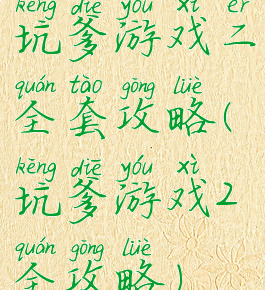 kēng diē yóu xì èr
坑爹游戏二
quán tào gōng lüè
全套攻略(
kēng diē yóu xì
坑爹游戏2
quán gōng lüè
全攻略)